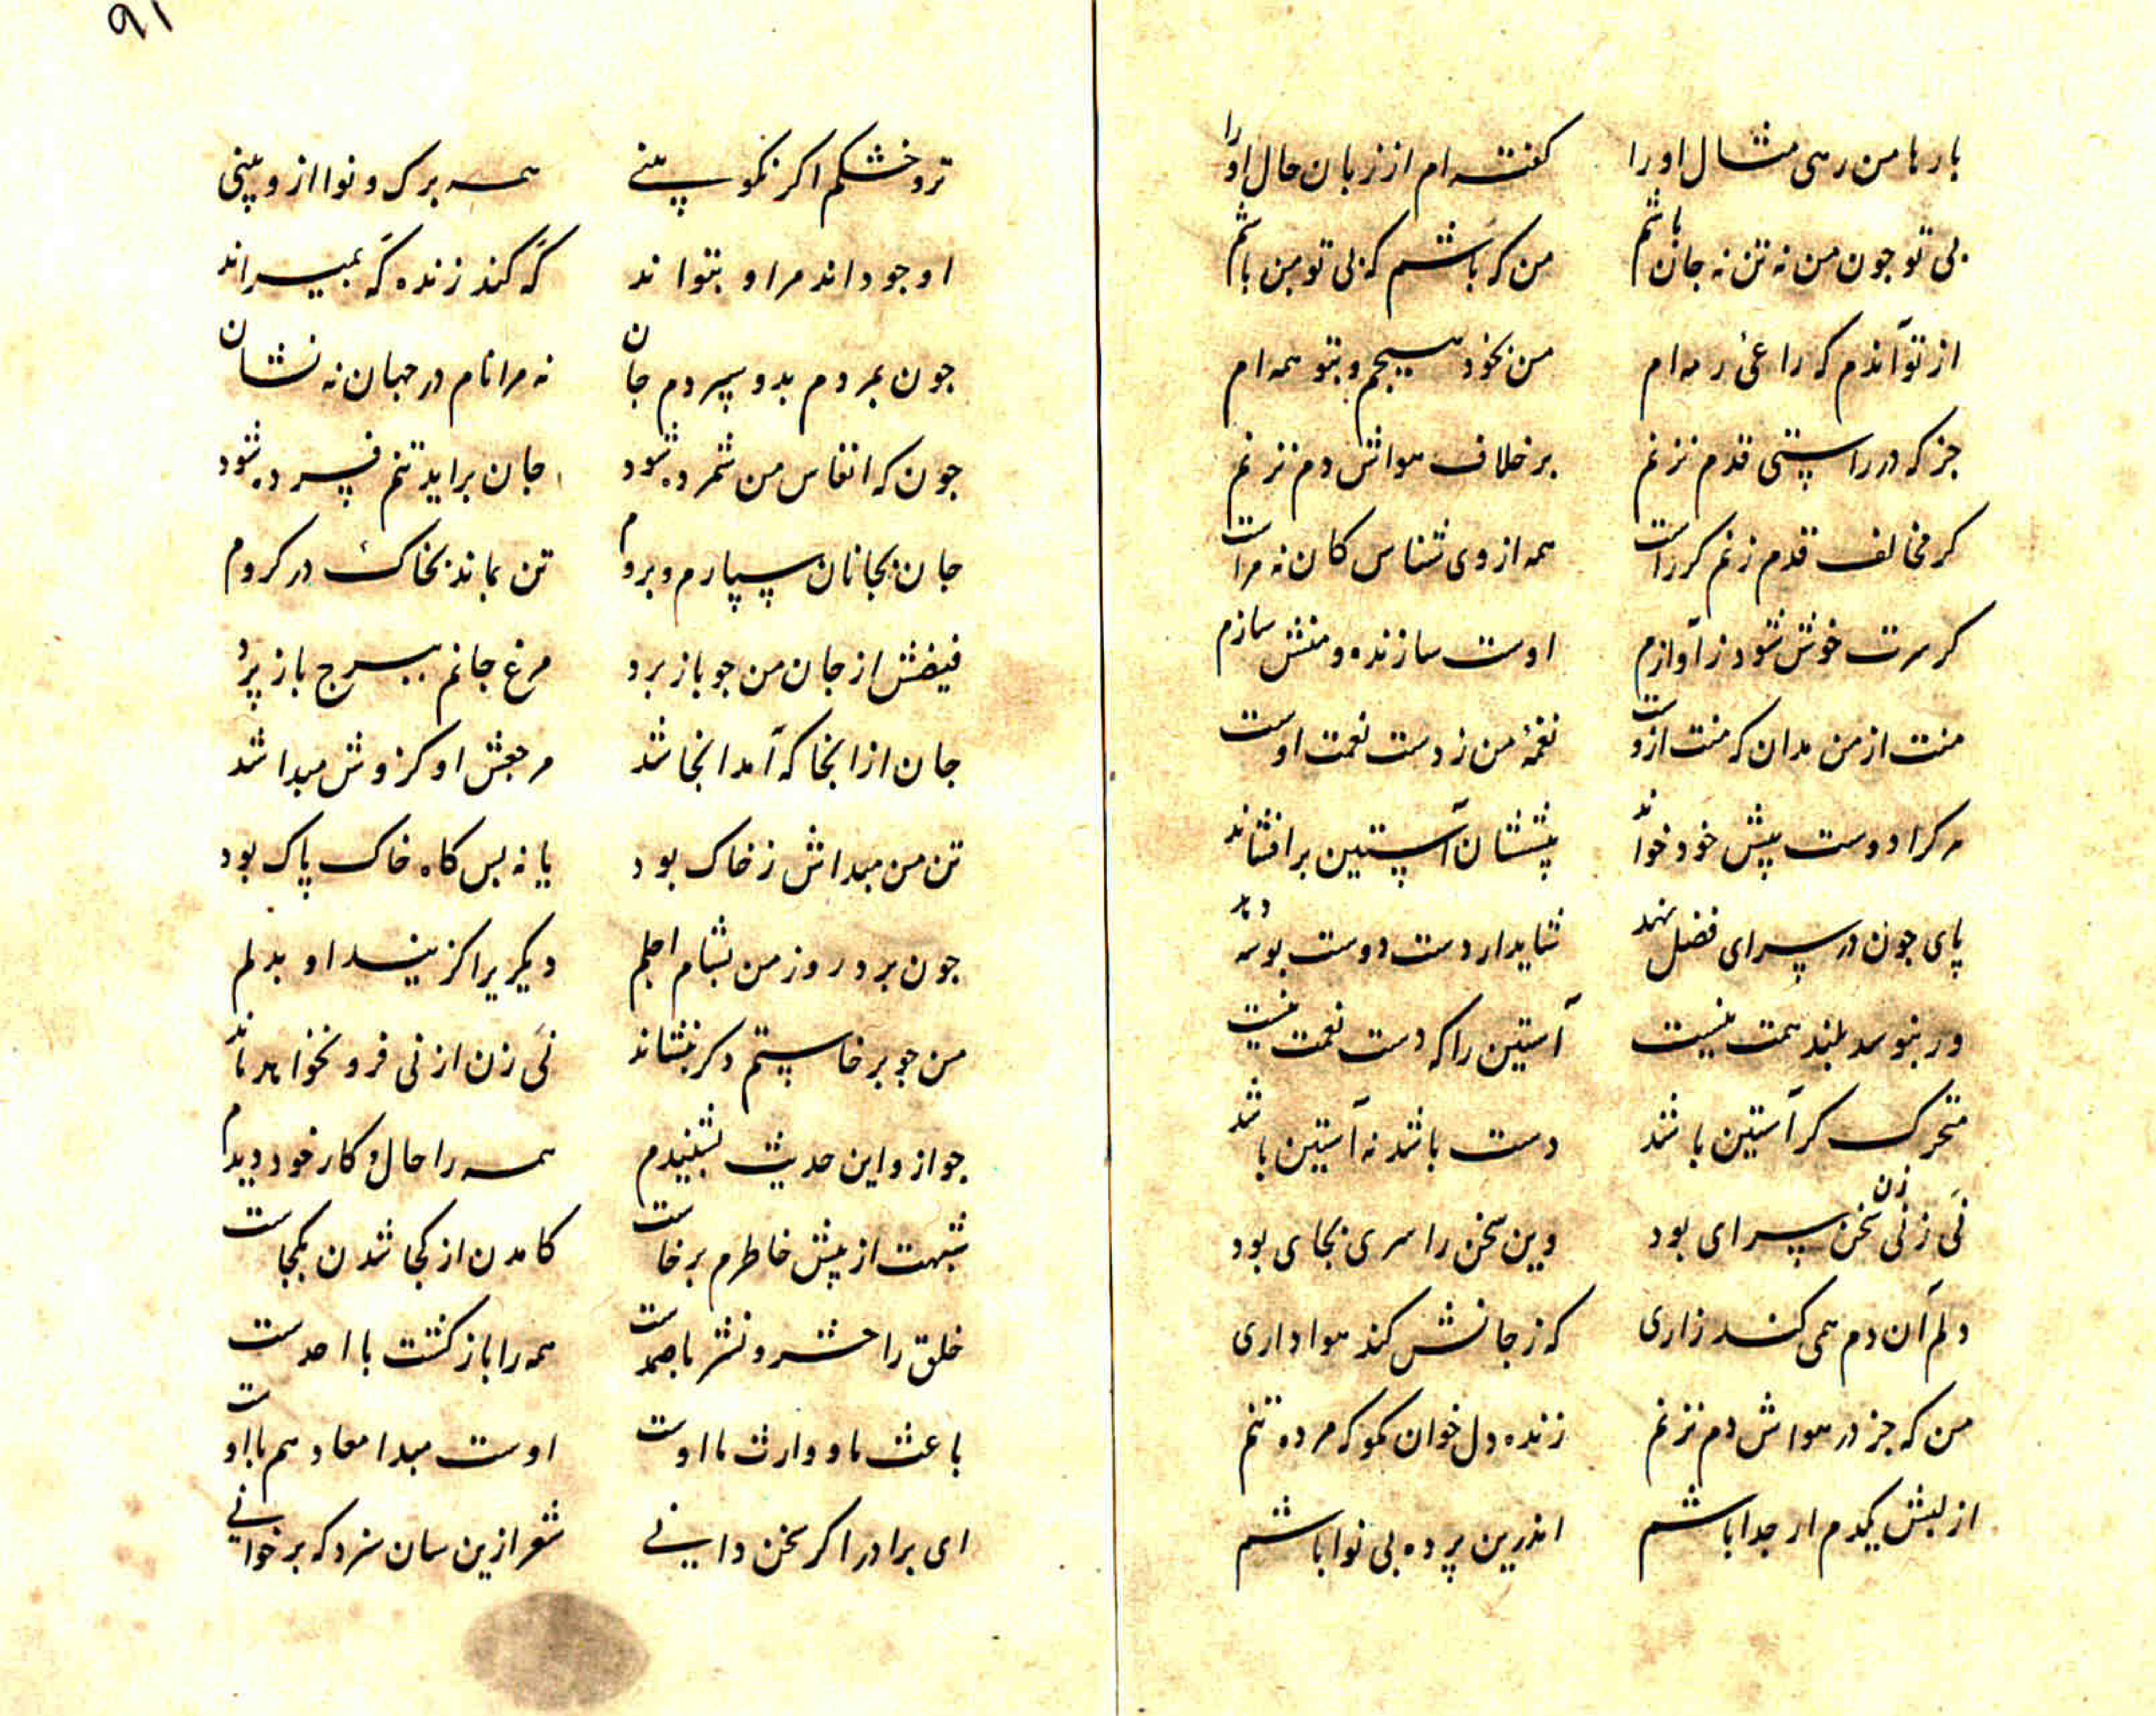 بارها من رهی مثال او را گفته ام از زبان حال او را
بی تو جون من نه تن نه جان باشم من که باشم که بی تو من باشم
از تو آندم که راعی رمه ام من بخود هیجم و بتو همه ام
جز که در راستی قدم نزنم بر خلاف هواش دم نزنم
کر مخالف قدم زنم کر راست همه از وی شناس کان نه مراست
کر سرت خوش شود ز آوازم اوست سازنده و منش سازم
منت از من مدان که منت ازوست نغمهٔ من ز دست نعمت اوست
هر کرا دوست پیش خود خواند پیششان آستین برافشاند
پای جون در سرای فضل نهد شاید ار دست دوست بوسه دهد
ور نبوسد بلند همت نیست آستین را که دست نعمت نیست
متحرک کر آستین باشد دست باشد نه آستین باشد
نی ز نی زن سخن سرای بود وین سخن را سری بجای بود
دلم آن دم همی کند زاری که ز جانش کند هواداری
من که جز در هواش دم نزنم زنده دل خوان مکو که مرده تنم
از لبش یکدم ار جدا باشم اندرین پرده بی نوا باشم
۹۱
تر و خشکم اکر نکو بینی همه برک و نوا ازو بینی
او جو داند مرا و بتواند که کند زنده که بمیراند
جون بمردم بدو سپردم جان نه مرا نام در جهان نه نشان
جون که انفاس من شمرده شود جان براید تنم فسرده شود
جان بجانان سپارم و بروم تن بماند بخاک در کروم
فیضش از جان من جو باز برد مرغ جانم ببرج باز پرد
جان از انجا که آمد انجا شد مرجعش او کزوش مبدا شد
تن من مبداش ز خاک بود یا نه بس کاه خاک پاک بود
جون برد روز من بشام اجلم دیکریرا کزیند او بدلم
من جو برخاستم دکر بنشاند نی زن از نی فرو نخواهد ماند
جو ازو این حدیث بشنیدم همه را حال و کار خود دیدم
شبهت از پیش خاطرم برخاست کامدن از کجا شدن بکجاست
خلق را حشر و نشر با صمدست همه را بازکشت با احدست
باعث ما و وارث ما اوست اوست مبدا معاد هم با اوست
ای برادر اکر سخن دانی شعر ازین سان سزد که برخوانی